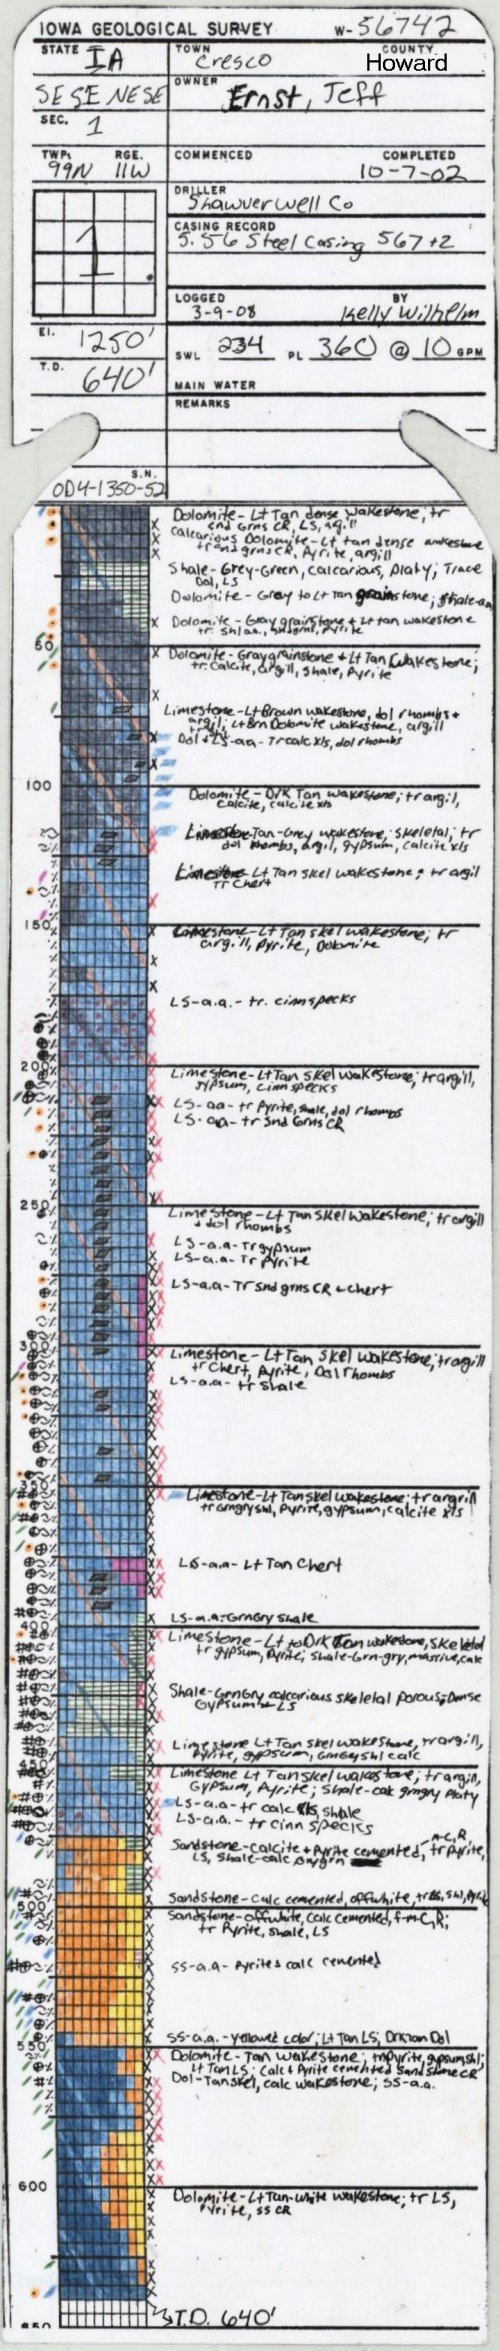 IOWA GEOLOGICAL SURVEY W-56742
STATE IA TOWN Cresco COUNTY Howard
SE SE NE SE OWNER Ernst, Jeff
SEC. 1
TWP. 99N RGE. 11W COMMENCED COMPLETED 10-7-02
DRILLER Shawver Well Co
CASING RECORD
5.56 Steel Casing 567 +2
1
LOGGED 3-9-08 BY Kelly Wilhelm
El. 1250' SWL 234 PL 360 @ 10 GPM
T.D. 640' MAIN WATER
REMARKS
S.N.
OD4-1350-52
Dolomite - Lt Tan dense wakestone, tr
snd grns CR, LS, argill
Calcarious Dolomite - Lt tan dense wakestone
tr snd grns CR, Pyrite, argill
Shale - Grey-Green, calcarious, platy; Trace
Dol, LS
Dolomite - Gray to Lt Tan grainstone; shale-aa
Dolomite - Gray grainstone + Lt tan wakestone
tr. shl aa., snd grns, pyrite
50
Dolomite - Gray grainstone + Lt Tan Wakestone;
tr. Calcite, argill, shale, Pyrite
Limestone - Lt Brown wakestone, dol rhombs +
argil; Lt Brn Dolomite wakestone, argill
Dol + LS-aa - Tr calc xls, dol rhombs
100
Dolomite - Drk Tan wakestone; tr argil,
Calcite, calcite xls
Limestone - Tan-Grey wakestone; skeletal; tr
dol rhombs, argil, gypsum, calcite xls
Limestone - Lt Tan skel wakestone; tr argil
Tr Chert
150
Limestone - Lt Tan skel wakestone; tr
argill, Pyrite, Dolomite
LS-a.a.- tr. cinn specks
200
Limestone - Lt Tan Skel wakestone; tr argill,
gypsum, cinn specks
LS-aa- tr Pyrite, shale, dol rhombs
LS-aa- tr Snd Grns CR
250
Limestone - Lt Tan Skel Wakestone; tr argill
+ dol rhombs
LS-a.a- Tr gypsum
LS-a.a- Tr Pyrite
LS-a.a- Tr Snd grns CR + chert
300
Limestone - Lt Tan Skel Wakestone; tr argill
tr Chert, Pyrite, Dol Rhombs
LS-a.a- tr Shale
350
Limestone - Lt Tan skel wakestone; tr argill
tr grngry shl, Pyrite, gypsum, calcite xls
LS-a.a- Lt Tan Chert
LS-a.a- GrnGry Shale
400
Limestone - Lt to Drk Tan wakestone, skeletal
tr gypsum, Pyrite; Shale-Grn-gry, massive, calc
Shale-GrnGry calcarious skeletal porous; Dense
Gypsum + LS
Limestone Lt Tan skel wakestone, tr argill,
Pyrite, gypsum, GrnGry shl calc
450
Limestone Lt Tan Skel wakestone; tr argill,
Gypsum, Pyrite; Shale-calc grngry Platy
LS-a.a- tr calc xls, shale
LS-a.a- tr cinn specks
Sandstone - Calcite + Pyrite cemented, m-C, R
tr Pyrite,
LS, Shale-calc
Sandstone - calc cemented, offwhite, tr LS, Shl, Pyrite
500
Sandstone - offwhite, calc Cemented, f-m-C, R;
tr Pyrite, shale, LS
SS-a.a- Pyrite + calc cemented
SS-a.a.- yellowed color; Lt Tan LS, Drk tan Dol
550
Dolomite - Tan wakestone; tr pyrite, gypsum, shl;
Lt Tan LS; Calc + Pyrite cemented Sandstone CR
Dol-Tan skel, calc wakestone; SS-a.a.
600
Dolomite - Lt Tan-white wakestone; tr LS,
Pyrite, SS CR
T.D. 640'
650